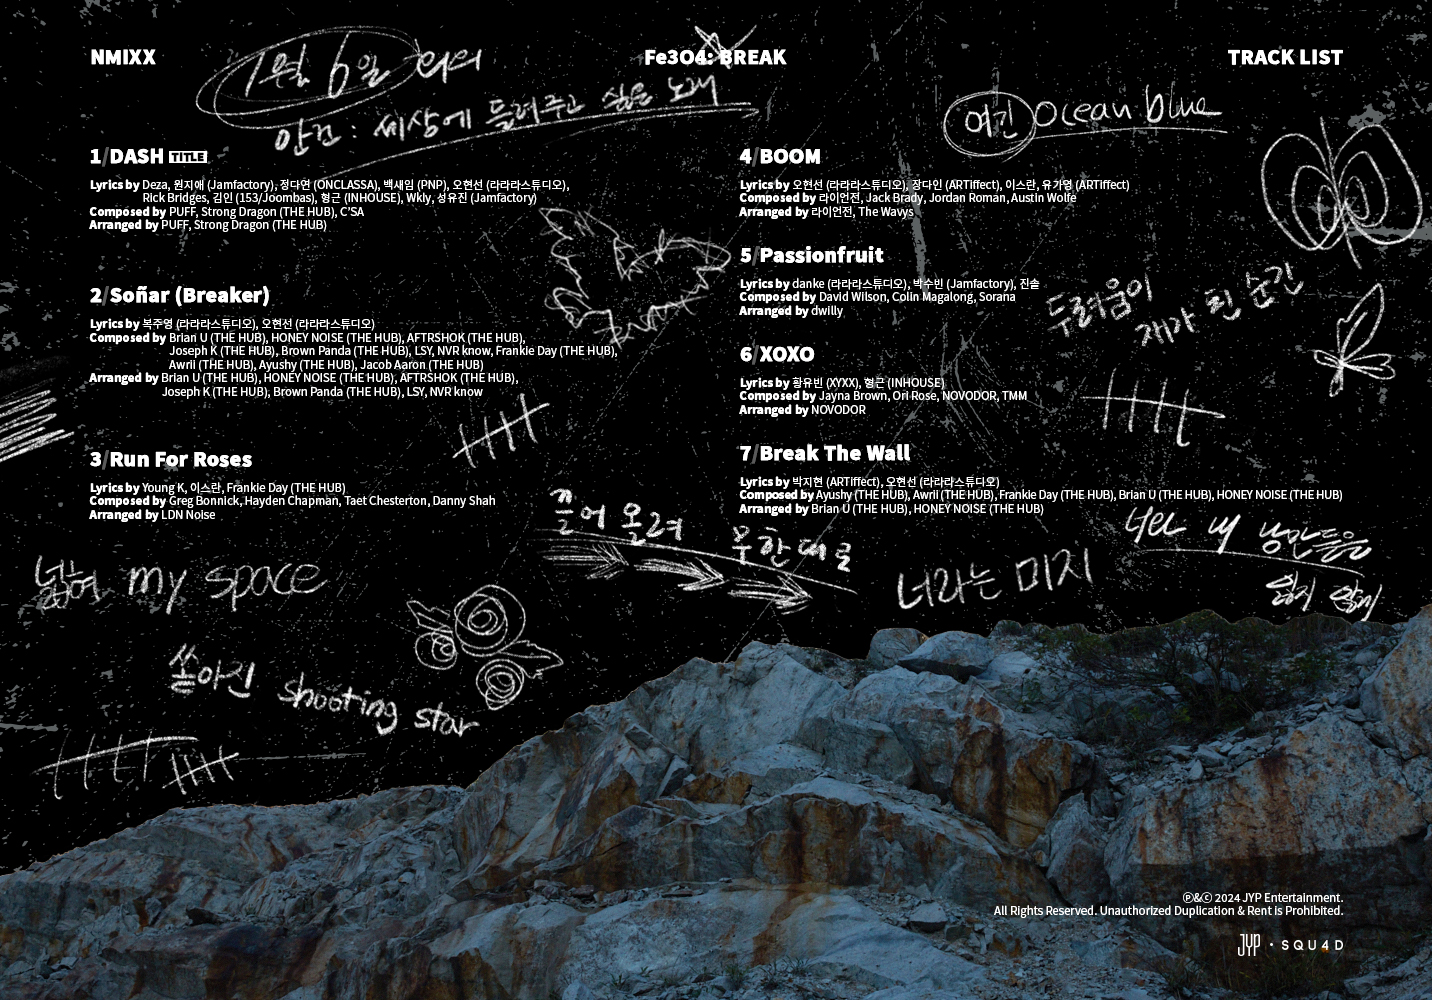 NMIXX
Fe3O4: BREAK
TRACK LIST
1월 6일 회의
안건 : 세상에 들려주고 싶은 노래
여긴 Ocean blue
1/DASH TITLE
Lyrics by Deza, 원지애 (Jamfactory), 정다연 (ONCLASSA), 백새임 (PNP), 오현선 (라라라스튜디오),
Rick Bridges, 김인 (153/Joombas), 형근 (INHOUSE), Wkly, 성유진 (Jamfactory)
Composed by PUFF, Strong Dragon (THE HUB), C'SA
Arranged by PUFF, Strong Dragon (THE HUB)
2/Soñar (Breaker)
Lyrics by 복주영 (라라라스튜디오), 오현선 (라라라스튜디오)
Composed by Brian U (THE HUB), HONEY NOISE (THE HUB), AFTRSHOK (THE HUB),
Joseph K (THE HUB), Brown Panda (THE HUB), LSY, NVR know, Frankie Day (THE HUB),
Awrii (THE HUB), Ayushy (THE HUB), Jacob Aaron (THE HUB)
Arranged by Brian U (THE HUB), HONEY NOISE (THE HUB), AFTRSHOK (THE HUB),
Joseph K (THE HUB), Brown Panda (THE HUB), LSY, NVR know
3/Run For Roses
Lyrics by Young K, 이스란, Frankie Day (THE HUB)
Composed by Greg Bonnick, Hayden Chapman, Taet Chesterton, Danny Shah
Arranged by LDN Noise
4/BOOM
Lyrics by 오현선 (라라라스튜디오), 장다인 (ARTiffect), 이스란, 유가영 (ARTiffect)
Composed by 라이언전, Jack Brady, Jordan Roman, Austin Wolfe
Arranged by 라이언전, The Wavys
5/Passionfruit
Lyrics by danke (라라라스튜디오), 박수빈 (Jamfactory), 진솔
Composed by David Wilson, Colin Magalong, Sorana
Arranged by dwilly
6/XOXO
Lyrics by 황유빈 (XYXX), 형근 (INHOUSE)
Composed by Jayna Brown, Ori Rose, NOVODOR, TMM
Arranged by NOVODOR
7/Break The Wall
Lyrics by 박지현 (ARTiffect), 오현선 (라라라스튜디오)
Composed by Ayushy (THE HUB), Awrii (THE HUB), Frankie Day (THE HUB), Brian U (THE HUB), HONEY NOISE (THE HUB)
Arranged by Brian U (THE HUB), HONEY NOISE (THE HUB)
두려움이
재가 된 순간
끌어 올려 무한대로
너란 내 낭만들을
잃지 않지
너라는 미지
넓혀 my space
쏟아진 shooting star
Ⓟ&ⓒ 2024 JYP Entertainment.
All Rights Reserved. Unauthorized Duplication & Rent is Prohibited.
JYP · SQU4D